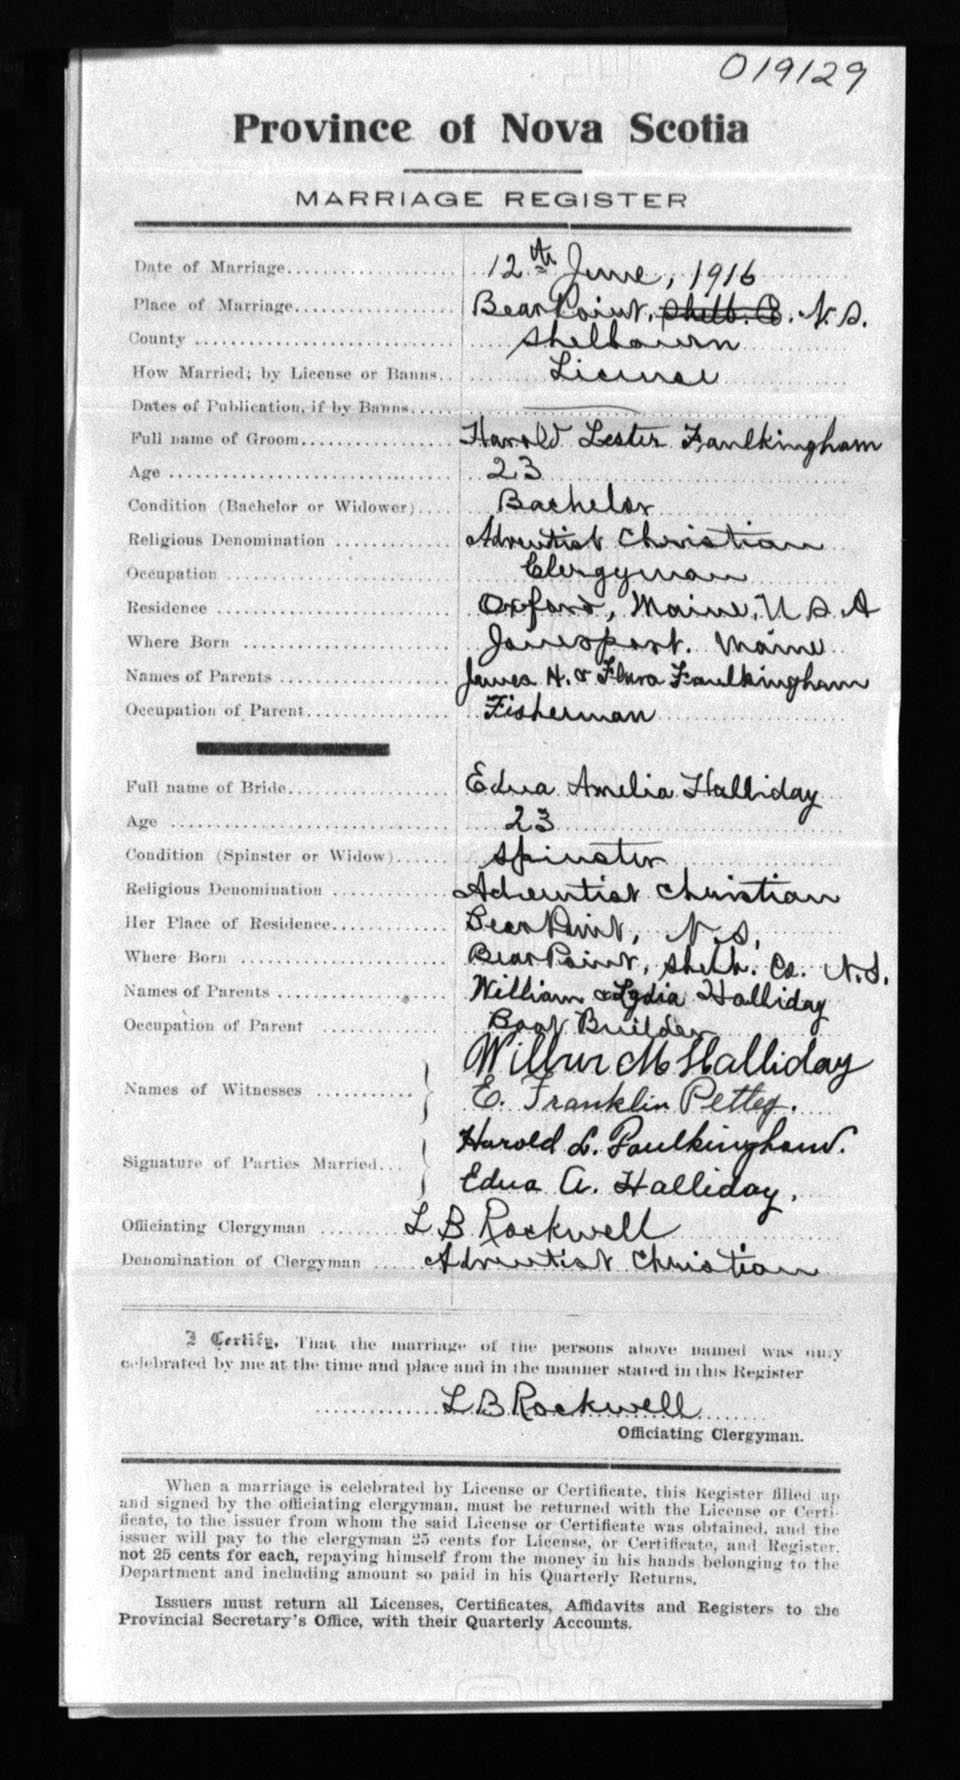 019129
Province of Nova Scotia
MARRIAGE REGISTER
Date of Marriage.................. 12th June, 1916
Place of Marriage.................. Bear Point, Shelb. Co. N.S.
County .................. Shelbourn
How Married; by License or Banns.. License
Dates of Publication, if by Banns.....
Full name of Groom.................. Harold Lester Faulkingham
Age .................. 23
Condition (Bachelor or Widower).... Bachelor
Religious Denomination ............ Adventist Christian
Occupation .................. Clergyman
Residence .................. Oxford, Maine, U S A
Where Born .................. Jonesport. Maine
Names of Parents .................. James H. & Flora Faulkingham
Occupation of Parent.................. Fisherman
Full name of Bride.................. Edna Amelia Halliday
Age .................. 23
Condition (Spinster or Widow)...... Spinster
Religious Denomination ............ Adventist Christian
Her Place of Residence............ Bear Point, N.S.
Where Born .................. Bear Point, Shelb. Co. N.S.
Names of Parents .................. William & Lydia Halliday
Occupation of Parent ............ Boat Builder
Wilbur M Halliday
Names of Witnesses ............ E. Franklin Pettey.
Harold L. Faulkingham.
Signature of Parties Married...
Edna A. Halliday.
Officiating Clergyman ........ L B Rockwell
Denomination of Clergyman ..... Adventist Christian
I Certify, That the marriage of the persons above named was duly
celebrated by me at the time and place and in the manner stated in this Register
L B Rockwell
Officiating Clergyman.
When a marriage is celebrated by License or Certificate, this Register filled up
and signed by the officiating clergyman, must be returned with the License or Certi-
ficate, to the issuer from whom the said License or Certificate was obtained, and the
issuer will pay to the clergyman 25 cents for License, or Certificate, and Register,
not 25 cents for each, repaying himself from the money in his hands belonging to the
Department and including amount so paid in his Quarterly Returns.
Issuers must return all Licenses, Certificates, Affidavits and Registers to the
Provincial Secretary's Office, with their Quarterly Accounts.